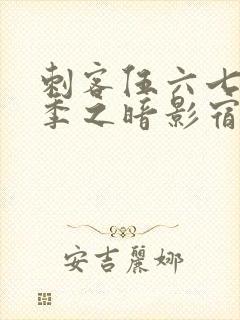 刺客伍六七
季之暗影宿
安吉麗娜